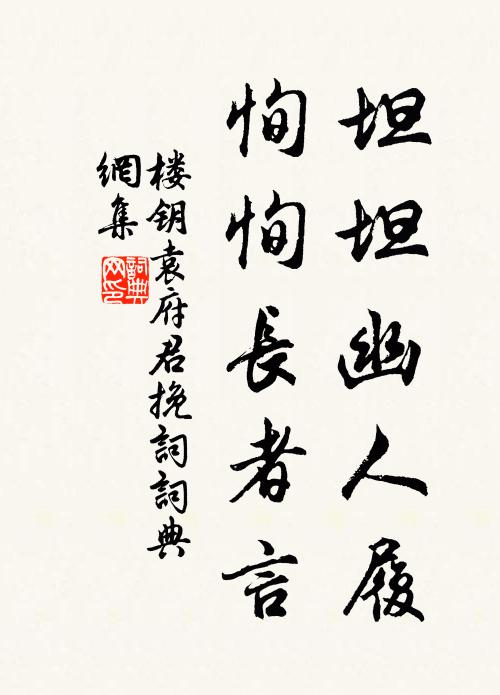 坦坦幽人履
恂恂長者言
楼钥袁府君挽詞詞典
網集
詞典網印